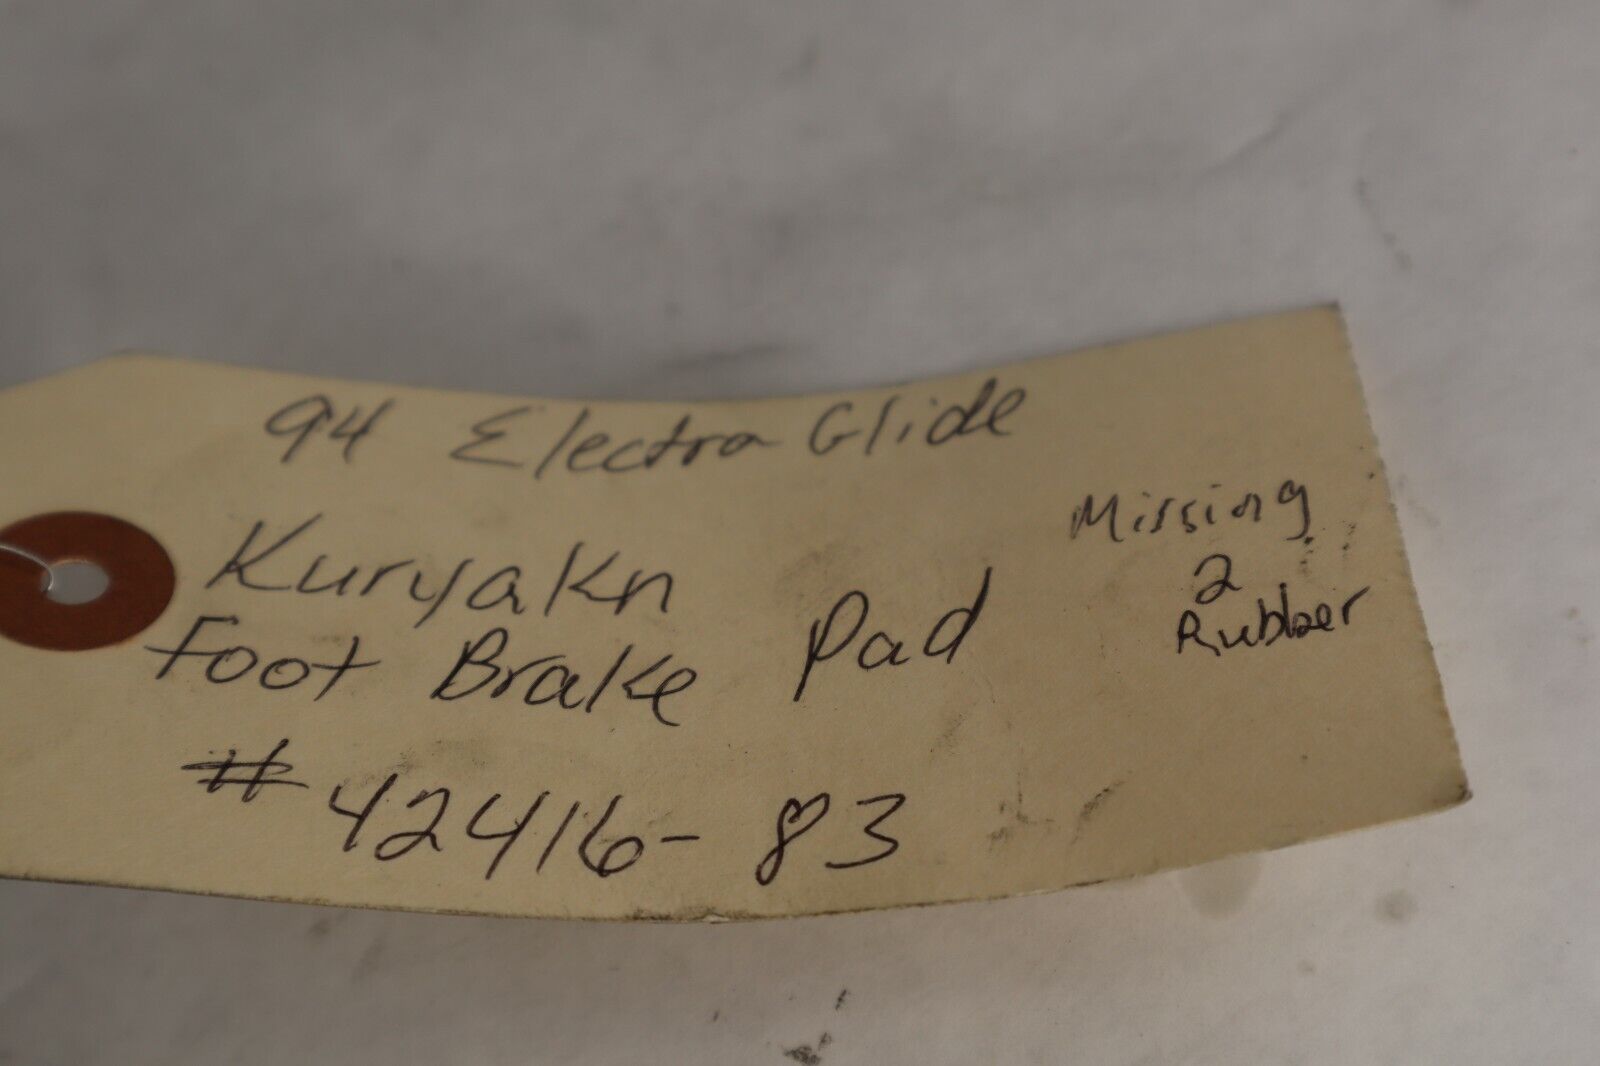 94 Electra Glide
Kuryakn
Foot Brake Pad
# 42416-83
Missing
2
Rubber